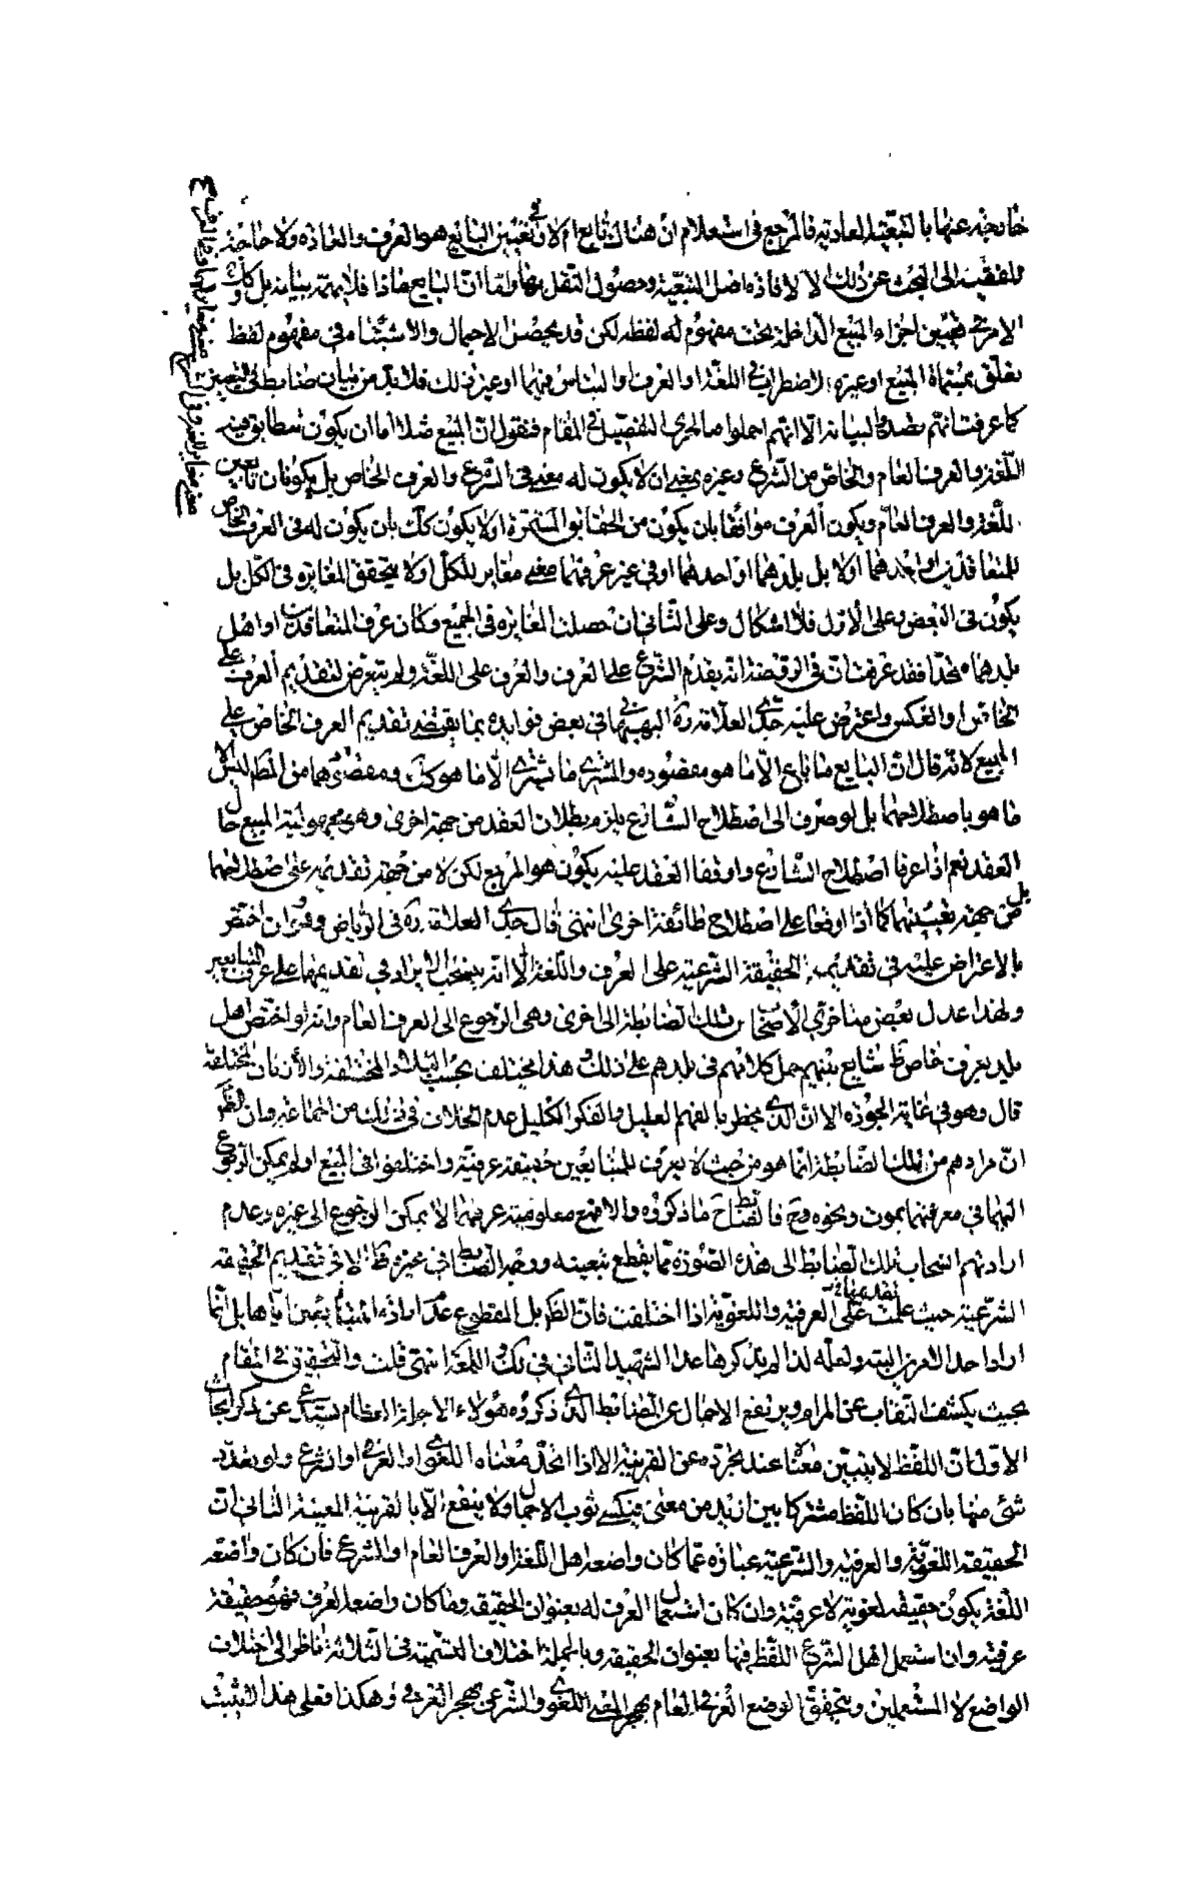 خارجة عنها بالتبعيّة العادية فالمرجع فى استعلام ان هناك تابع ام لا وفى تعيين التابع هو العرف والعادة ولا حاجة
للفقيه الى البحث عن ذلك الا لافادة اصل التبعيّة وحصول النقل بها وامّا انّ التابع ماذا فلا يهمّه بيانه بل كان
الامر فى تعيين اجزاء المبيع الداخلة تحت مفهوم له لفظه لكن قد يحصل الاجمال والاشتباه فى مفهوم لفظ
تعلّق بمسمّاة المبيع او غيره لاضطراب فى اللغة او العرف والتباس فيهما او غير ذلك فلا بد من بيان ضابط فى التعيين
كما عرفت انهم بصدد بيانه الا انهم اجملوا والحرى التفصيل فى المقام فنقول انّ المبيع مثلا اما ان يكون متطابق فيه
اللّغة والعرف العام والخاص من الشرع وغيره بمعنى ان لا يكون له معنى فى الشرع والعرف الخاص بل يكونان تابعين
للّغة والعرف العامّ ويكون العرف موافقا بان يكون من الحقايق المستمرة او لا يكون كك بان يكون له فى العرف الخاص
للمتعاقدين او احدهما او لا بل بلدهما او احدهما او فى غير عرفهما معنى مغاير للكلّ او لا يتحقق المغايرة فى الكل بل
يكون فى البعض وعلى الاول فلا اشكال وعلى الثانى ان حصلت المغايرة فى الجميع وكان عرف المتعاقدين او اهل
بلدهما متحدا فقد عرفت انّ فى الروضة انّه يقدّم الشرع على العرف والعرف على اللغة ولم يتعرض لتقديم العرف على
الخاص او العكس واعترض عليه جدى العلامة ره البهبهانى فى بعض فوايده بما يقتضى تقديم العرف الخاص على
الجميع لانّه قال انّ البايع ما باع الّا ما هو مقصوده والمشترى ما يشترى الّا ما هو كك ومقصودهما من اللفظ ليس الا
ما هو باصطلاحهما بل لو صرف الى اصطلاح الشارع يلزم بطلان العقد من جهة اخرى وهى مجهولية المبيع حال
العقد نعم اذا عرفا اصطلاح الشارع واوقفا العقد عليه يكون هو المرجع لكن لا من جهة تقديمه على اصطلاحهما
بل من جهة تعيينهما كما اذا اوقعا على اصطلاح طائفة اخرى انتهى قال جدى العلامة ره فى الرياض وان اختصر
بالاعتراض عليه فى تقديمه الحقيقة الشرعية على العرف واللغة الا انه يتجه الايراد فى تقديمها على عرف المتبايعين
ولهذا عدل بعض متاخرى الاصحاب عن تلك الضابطة الى اخرى وهى الرجوع الى العرف العام وانه لو اختص اهل
بلد بعرف خاص ظ شايع بينهم حمل كلامهم فى بلدهم على ذلك وهذا يختلف بحسب البلاد المختلفة والازمان المختلفة
قال وهو فى غاية الجودة الا انّ الذى يخطر بالفهم العليل والفكر الكليل عدم الخلاف فى ذلك من الجماعة وان الظ
انّ مرادهم من تلك الضابطة انما هو من حيث لا يعرف للمتبايعين حقيقة عرفيّة واختلفوا فى المبيع او لم يمكن الرجوع
اليهما فى معرفتهما بموت ونحوه وح فالضابط ما ذكروه والا فمع معلومية عرفهما لا يمكن الرجوع الى غيره وعدم
ارادتهم انسحاب تلك الضابط الى هذه الصورة ممّا يقطع بتعينه ووجه الضابط فى غيره ظ الا فى تقديم الحقيقة
الشرعية حيث علمت تقدمها على العرفية واللغويّة اذا اختلفت فانّ الظ بل المقطوع عدم ارادة المتبايعين اياها بل انّما
ارادا احد الاخرين البته ولعله لذا لم يذكرها عدا الشهيد الثانى فى تلك اللمعة انتهى قلت والتحقيق فى المقام
بحيث يكشف النقاب عن المرام ويرتفع الاجمال عن الضابط الذى ذكروه هؤلاء الاجلة العظام يستدعى عن ذكر ابحاث
الاوّل انّ اللفظ لا يتبيّن معناه عند تجرّده عن القرينة الا اذا اتحد معناه اللغوى او العرفى او الشرعى ولو تعدّد
شئ منها بان كان اللّفظ مشتركا بين ازيد من معنى فيكسى ثوب الاجمال ولا ينفع الّا بالقرينة المعينة الثانى انّ
الحقيقة اللغويّة والعرفية والشرعية عبارة عمّا كان واضعه اهل اللّغة او العرف العام او الشرع فان كان واضعه
اللّغة يكون حقيقة لغوية لا عرفيّة وان كان استعمال العرف له بعنوان الحقيقة وما كان واضعه العرف فهو حقيقة
عرفية وان استعمل اهل الشرع اللّفظ فيها بعنوان الحقيقة وبالجملة اختلاف التسمية فى الثلاثة ناظر الى اختلاف
الواضع لا المستعملين ويتحقق الوضع العرفى العام بهجر المعنى اللغوى والشرعى بهجر العرفى وهكذا فعلى هذا التثبيت